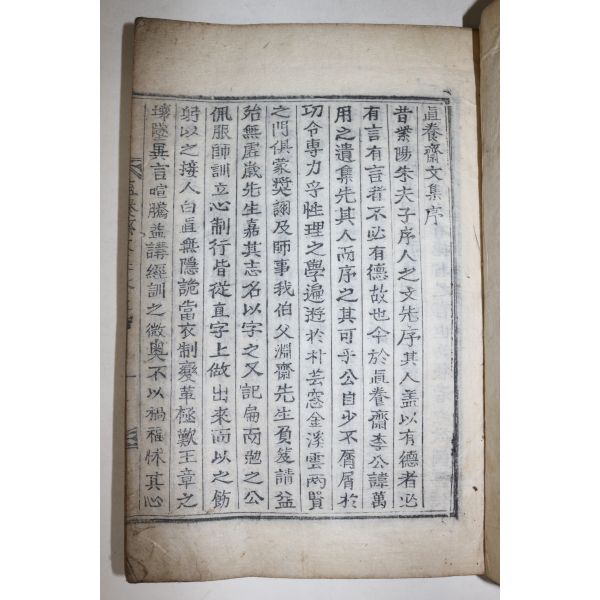 直養齋文集序
昔紫陽朱夫子序人之文先序其人盖以有德者必
有言有言者不必有德故也今於直養齋李公諱萬
用之遺集先其人而序之其可乎公自少不屑屑於
功令專力乎性理之學遍遊於朴芸窓金溪雲兩賢
之門俱蒙奬詡及師事我伯父淵齋先生負笈請益
殆無虛歲先生嘉其志名以字之又記扁而勉之公
佩服師訓立心制行皆從直字上做出來而以之飭
躬以之接人白直無隱詭當衣制變革極歎王章之
壞隳異言喧騰益講經訓之微奧不以禍福怵其心
直養齋文集